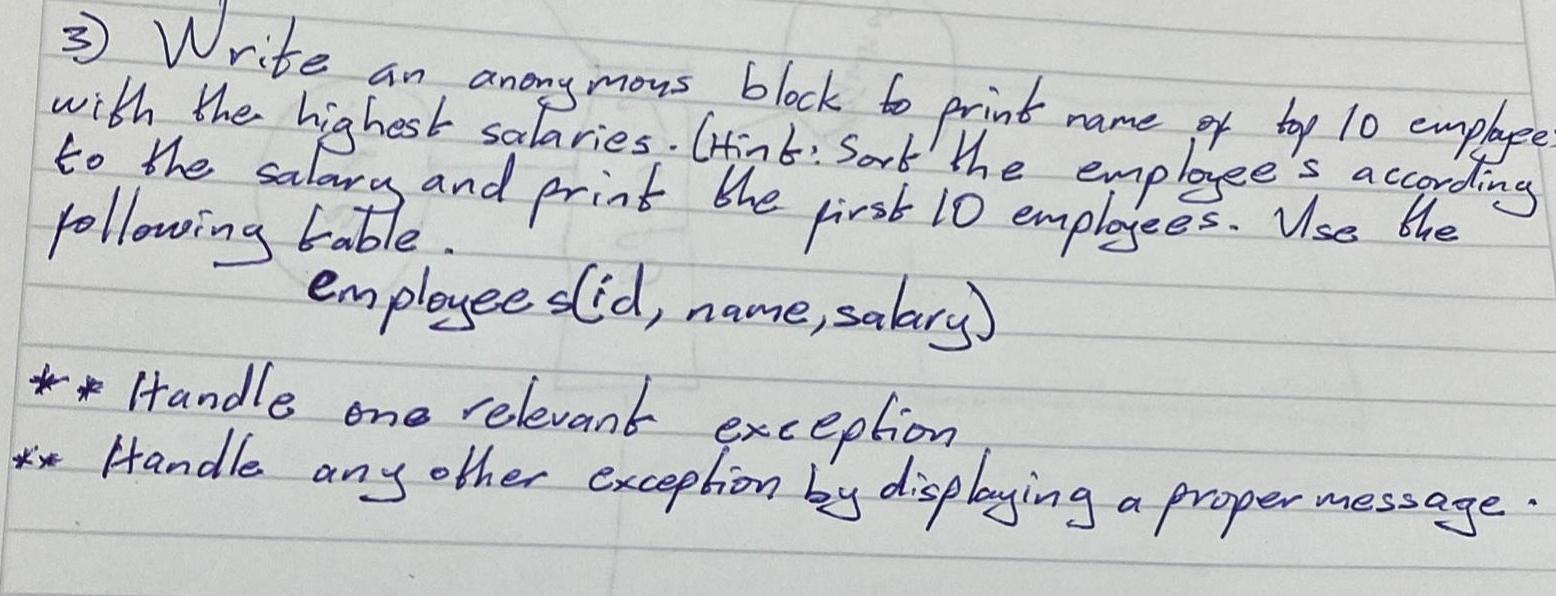 3) Write an anonymous block to print name of top 10 employees
with the highest salaries. (Hint: Sort the employee's according
to the salary and print the first 10 employees. Use the
following table.
employees(id, name, salary)
** Handle one relevant exception
** Handle any other exception by displaying a proper message.